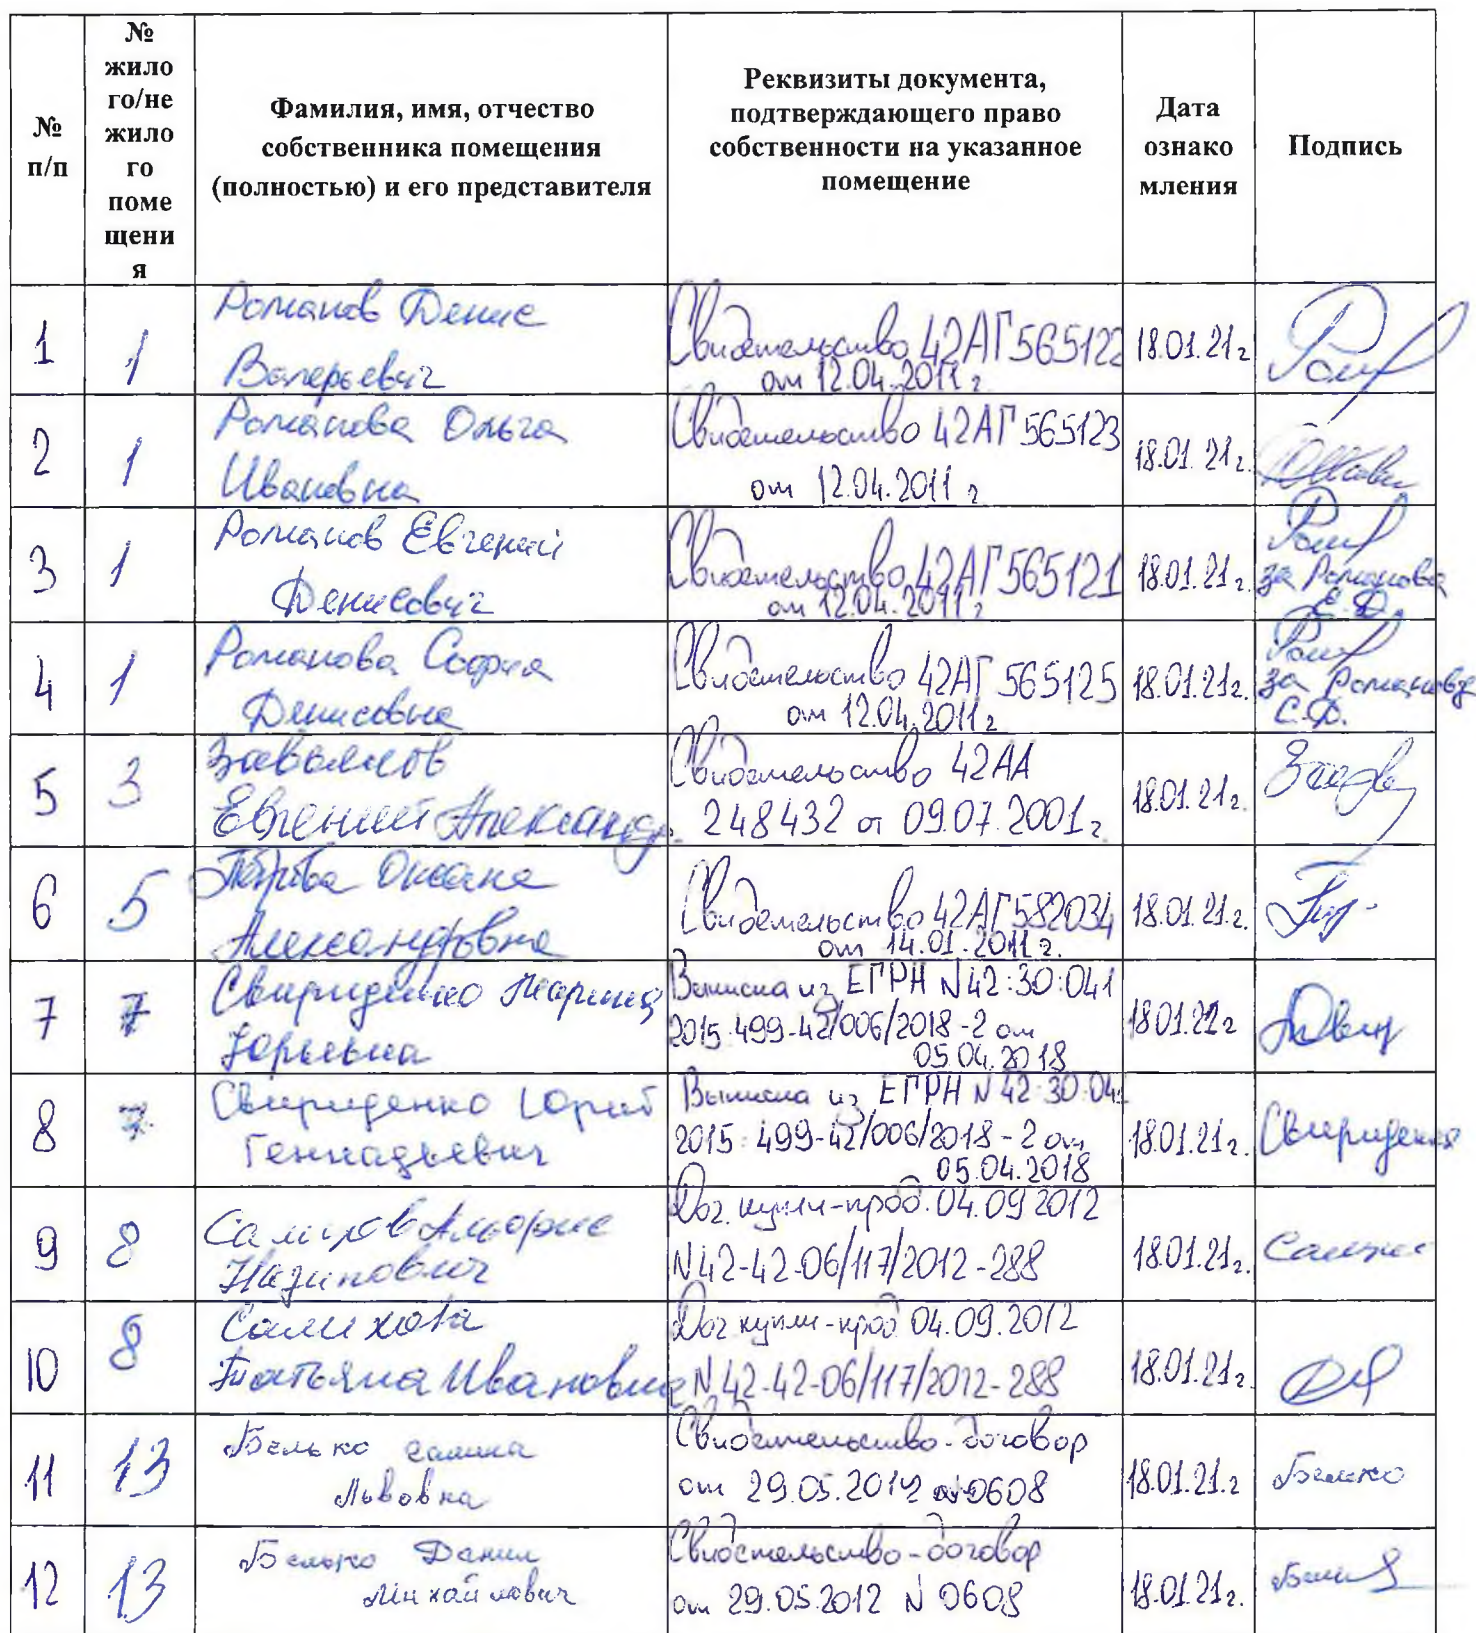 №
п/п
№
жило
го/не
жило
го
поме
щени
я
Фамилия, имя, отчество
собственника помещения
(полностью) и его представителя
Реквизиты документа,
подтверждающего право
собственности на указанное
помещение
Дата
ознако
мления
Подпись
1
1
Романов Денис
Валерьевич
Свидетельство 42АГ565122
от 12.04.2011г
18.01.21г
Ром
2
1
Романова Ольга
Ивановна
Свидетельство 42АГ565123
от 12.04.2011г
18.01.21г.
3
1
Романов Евгений
Денисович
Свидетельство 42АГ565121
от 12.04.2011г
18.01.21г.
Ром
за Романова
Е.Д.
4
1
Романова София
Денисовна
Свидетельство 42АГ 565125
от 12.04.2011г
18.01.21г.
Ром
за Романову
С.Д.
5
3
Завьялов
Евгений Александр.
Свидетельство 42АА
248432 от 09.07.2001г
18.01.21г.
6
5
Оксана
Александровна
Свидетельство 42АГ582034
от 14.01.2011г.
18.01.21.г.
7
7
Свириденко Марина
Юрьевна
Выписка из ЕГРН N42:30:041
2015:499-42/006/2018-2 от
05.04.2018
18.01.21г
8
7
Свириденко Юрий
Геннадьевич
Выписка из ЕГРН N 42:30:041
2015:499-42/006/2018-2 от
05.04.2018
18.01.21г.
Свириденко
9
8
Салихов Альфис
Назипович
Дог. купли-прод. 04.09.2012
N42-42-06/117/2012-288
18.01.21г.
10
8
Салихова
Татьяна Ивановна
Дог купли-прод 04.09.2012
N 42-42-06/117/2012-288
18.01.21г
11
13
Белько Галина
Львовна
Свидетельство-договор
от 29.05.2012 N0608
18.01.21.г
Белько
12
13
Белько Данил
Михайлович
Свидетельство-договор
от 29.05.2012 N 0608
18.01.21г.